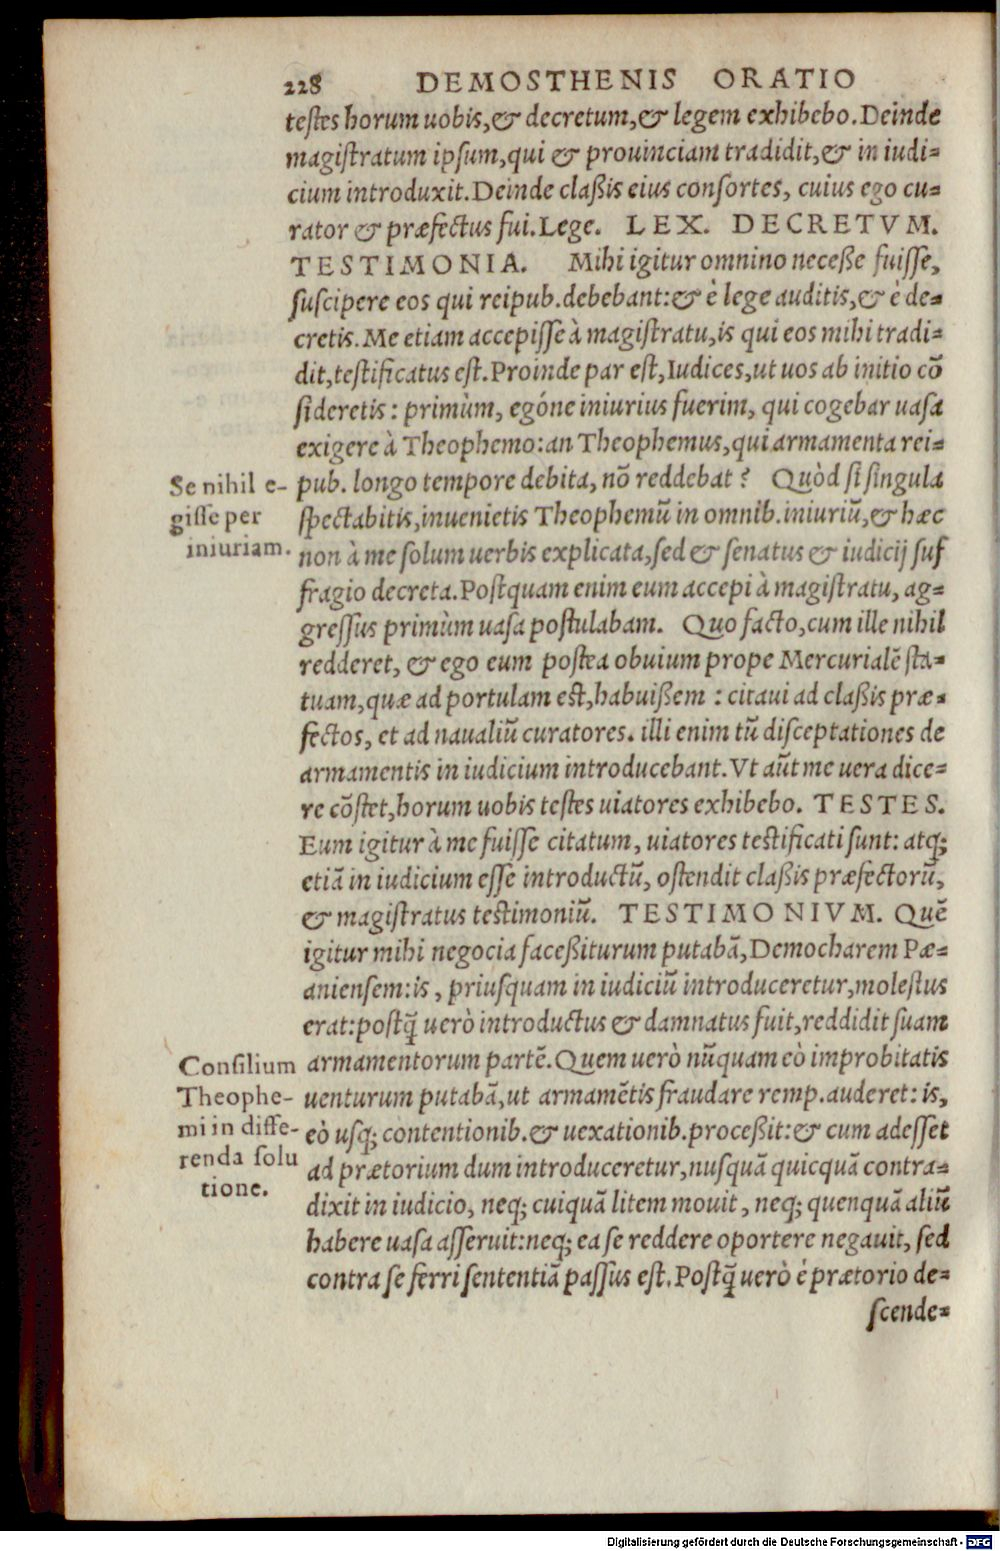 228 DEMOSTHENIS ORATIO
testes horum uobis,& decretum,& legem exhibebo. Deinde
magistratum ipsum,qui & prouinciam tradidit,& in iudi-
cium introduxit. Deinde claßis eius consortes, cuius ego cu-
rator & præfectus fui. Lege. LEX. DECRETVM.
TESTIMONIA. Mihi igitur omnino neceße fuisse,
suscipere eos qui reipub. debebant:& è lege auditis,& è de-
cretis. Me etiam accepisse à magistratu,is qui eos mihi tradi-
dit,testificatus est. Proinde par est, Iudices,ut uos ab initio cõ
sideretis: primùm, egóne iniurius fuerim, qui cogebar uasa
exigere à Theophemo: an Theophemus,qui armamenta rei-
Se nihil e-
gisse per
iniuriam.
pub. longo tempore debita, nõ reddebat? Quòd si singula
spectabitis,inuenietis Theophemũ in omnib. iniuriũ,& hæc
non à me solum uerbis explicata,sed & senatus & iudicij suf
fragio decreta. Postquam enim eum accepi à magistratu, ag-
gressus primùm uasa postulabam. Quo facto,cum ille nihil
redderet, & ego eum postea obuium prope Mercurialẽ sta-
tuam,quæ ad portulam est,habuißem: citaui ad claßis præ-
fectos, et ad naualiũ curatores. illi enim tũ disceptationes de
armamentis in iudicium introducebant. Vt aũt me uera dice-
re cõstet,horum uobis testes uiatores exhibebo. TESTES.
Eum igitur à me fuisse citatum, uiatores testificati sunt: atq;
etiã in iudicium esse introductũ, ostendit claßis præfectorũ,
& magistratus testimoniũ. TESTIMONIVM. Quẽ
igitur mihi negocia faceßiturum putabã, Democharem Pæ-
aniensem: is, priusquam in iudiciũ introduceretur,molestus
erat: postq̃ uerò introductus & damnatus fuit,reddidit suam
Consilium
Theophe-
mi in diffe-
renda solu
tione.
armamentorum partẽ. Quem uerò nũquam eò improbitatis
uenturum putabã,ut armamẽtis fraudare remp. auderet: is,
eò usq; contentionib. & uexationib. proceßit:& cum adesset
ad prætorium dum introduceretur,nusquã quicquã contra-
dixit in iudicio, neq; cuiquã litem mouit, neq; quenquã aliũ
habere uasa asseruit: neq; ea se reddere oportere negauit, sed
contra se ferri sententiã passus est. Postq̃ uerò è prætorio de-
scende-
Digitalisierung gefördert durch die Deutsche Forschungsgemeinschaft - DFG